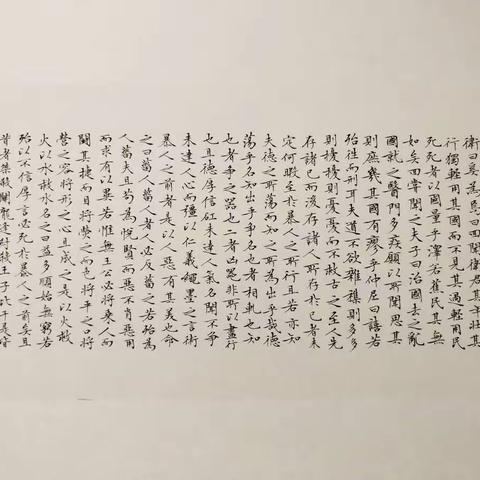 衛曰奚為焉曰回聞衛君其年壯其
行獨輕用其國而不見其過輕用民
死死者以國量乎澤若蕉民其無
如矣回嘗聞之夫子曰治國去之亂
國就之醫門多疾願以所聞思其
則庶幾其國有瘳乎仲尼曰譆若
殆往而刑耳夫道不欲雜雜則多多
則擾擾則憂憂而不救古之至人先
存諸己而後存諸人所存於己者未
定何暇至於暴人之所行且若亦知
夫德之所蕩而知之所為出乎哉德
蕩乎名知出乎爭名也者相軋也知
也者爭之器也二者凶器非所以盡行
也且德厚信矼未達人氣名聞不爭
未達人心而彊以仁義繩墨之言術
暴人之前者是以人惡有其美也命
之曰菑人菑人者人必反菑之若殆為
人菑夫且苟為悅賢而惡不肖惡用
而求有以異若惟無王公必將乘人而
鬭其捷而目將熒之而色將平之口將
營之容將形之心且成之是以火救
火以水救水名之曰益多順始無窮若
殆以不信厚言必死於暴人之前矣且
昔者桀殺關龍逢紂殺王子比干是皆